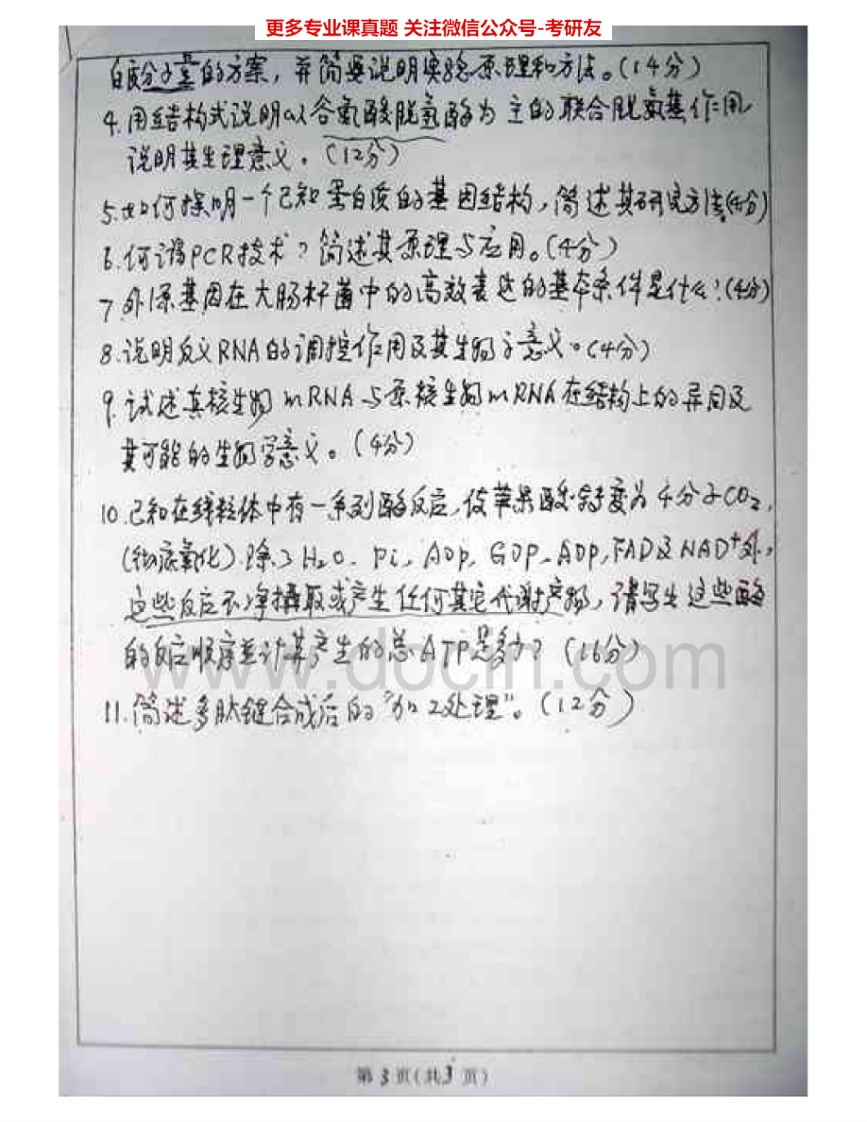 更多专业课真题 关注微信公众号-考研友
白质分子量的方案，并简要说明实验原理和方法。(14分)
4.用结构式说明以谷氨酸脱氢酶为主的联合脱氨基作用，
说明其生理意义。(12分)
5.如何探明一个已知蛋白质的基因结构，简述其研究方法(4分)
6.何谓PCR技术？简述其原理与应用。(4分)
7.外源基因在大肠杆菌中的高效表达的基本条件是什么？(4分)
8.说明反义RNA的调控作用及其生物学意义。(4分)
9.试述真核生物mRNA与原核生物mRNA在结构上的异同及
其可能的生物学意义。(4分)
10.已知在线粒体中有一系列酶反应，使苹果酸转变为4分子CO2，
(彻底氧化).除了H2O、Pi、ADP、GDP、ADP,FAD及NAD+外，
这些反应不净摄取或产生任何其它代谢产物，请写出这些酶
的反应顺序并计算产生的总ATP是多少？(16分)
www.docin.com
11.简述多肽链合成后的"加工处理"。(12分)
第3页(共3页)